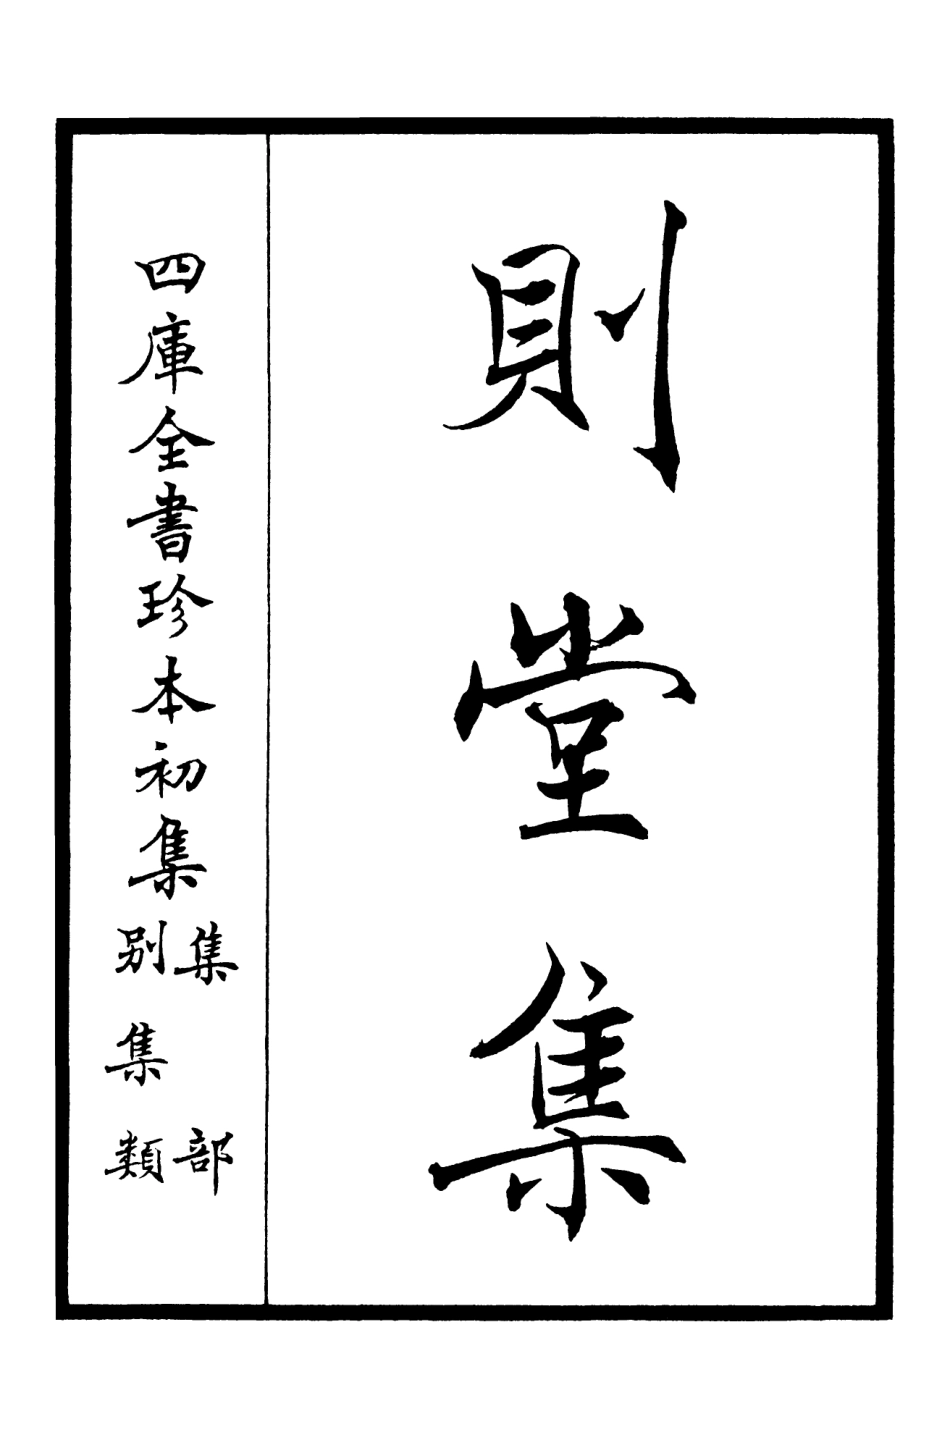 則堂集
四庫全書珍本初集
集部
別集類